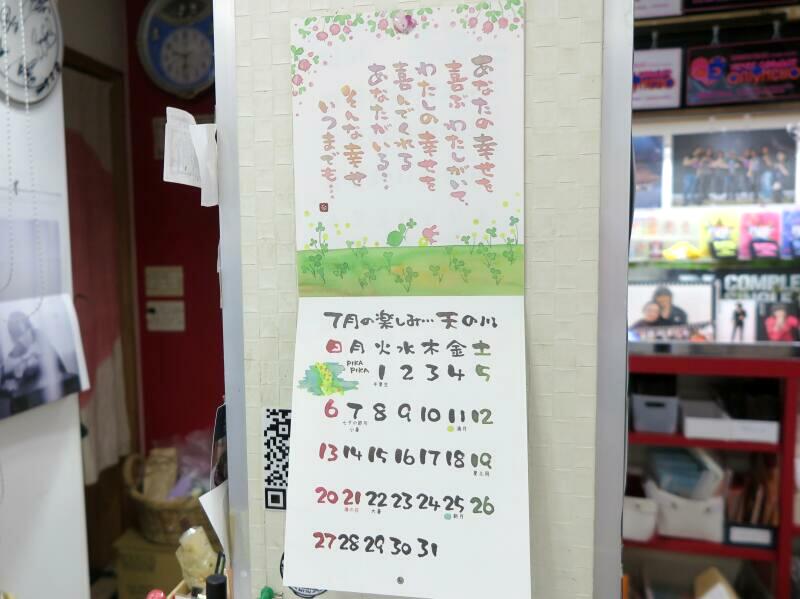 あなたの幸せを
喜ぶ わたしがいて、
わたしの幸せを
喜んでくれる
あなたがいる…
そんな幸せ
いつまでも…
7月の楽しみ… 天の川
日 月 火 水 木 金 土
PIKA
PIKA
1 2 3 4 5
半夏生
6 7 8 9 10 11 12
七夕の節句
小暑
満月
13 14 15 16 17 18 19
夏土用
20 21 22 23 24 25 26
海の日 大暑 新月
27 28 29 30 31
COMPLE
SINGLE